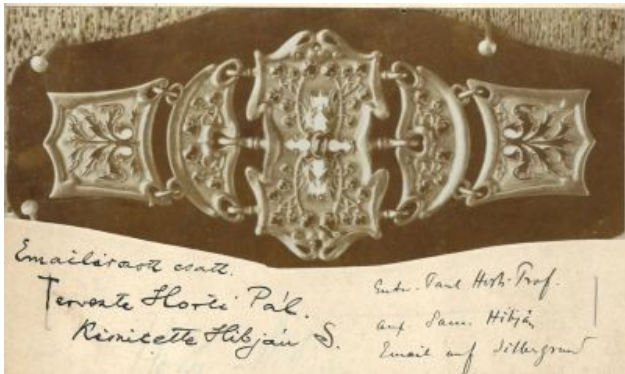 Emailirozott csatt.
Tervezte Horti Pál.
Készitette Hibján S.
Entw. Paul Horti Prof.
Sam. Hibján
Email auf Silbergrund